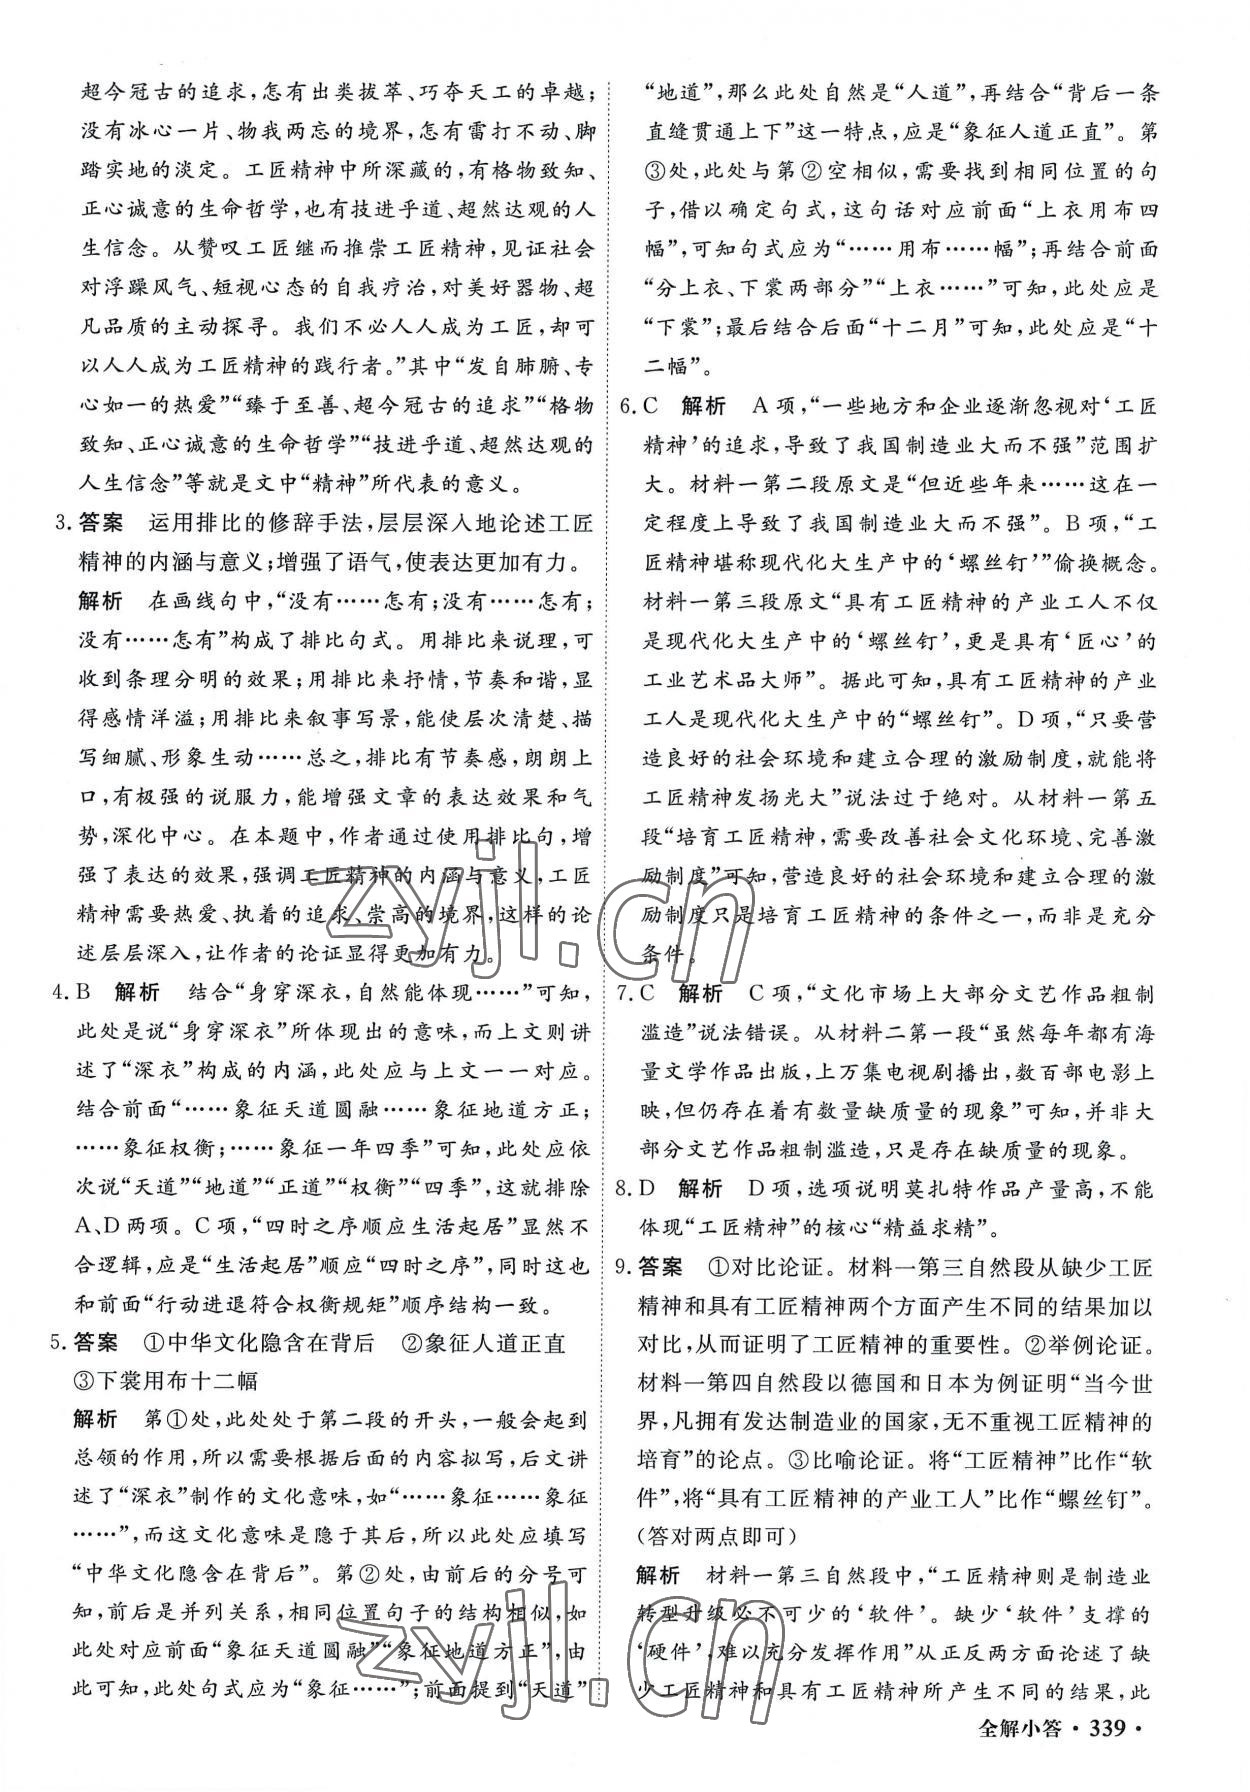 超今冠古的追求,怎有出类拔萃、巧夺天工的卓越;
没有冰心一片、物我两忘的境界,怎有雷打不动、脚
踏实地的淡定。工匠精神中所深藏的,有格物致知、
正心诚意的生命哲学,也有技进乎道、超然达观的人
生信念。从赞叹工匠继而推崇工匠精神,见证社会
对浮躁风气、短视心态的自我疗治,对美好器物、超
凡品质的主动探寻。我们不必人人成为工匠,却可
以人人成为工匠精神的践行者。”其中“发自肺腑、专
心如一的热爱”“臻于至善、超今冠古的追求”“格物
致知、正心诚意的生命哲学”“技进乎道、超然达观的
人生信念”等就是文中“精神”所代表的意义。
3. 答案 运用排比的修辞手法,层层深入地论述工匠
精神的内涵与意义;增强了语气,使表达更加有力。
解析 在画线句中,“没有……怎有;没有……怎有;
没有……怎有”构成了排比句式。用排比来说理,可
收到条理分明的效果;用排比来抒情,节奏和谐,显
得感情洋溢;用排比来叙事写景,能使层次清楚、描
写细腻、形象生动……总之,排比有节奏感,朗朗上
口,有极强的说服力,能增强文章的表达效果和气
势,深化中心。在本题中,作者通过使用排比句,增
强了表达的效果,强调工匠精神的内涵与意义,工匠
精神需要热爱、执着的追求、崇高的境界,这样的论
述层层深入,让作者的论证显得更加有力。
4. B 解析 结合“身穿深衣,自然能体现……”可知,
此处是说“身穿深衣”所体现出的意味,而上文则讲
述了“深衣”构成的内涵,此处应与上文一一对应。
结合前面“……象征天道圆融……象征地道方正;
……象征权衡;……象征一年四季”可知,此处应依
次说“天道”“地道”“正道”“权衡”“四季”,这就排除
A、D两项。C项,“四时之序顺应生活起居”显然不
合逻辑,应是“生活起居”顺应“四时之序”,同时这也
和前面“行动进退符合权衡规矩”顺序结构一致。
5. 答案 ①中华文化隐含在背后 ②象征人道正直
③下裳用布十二幅
解析 第①处,此处处于第二段的开头,一般会起到
总领的作用,所以需要根据后面的内容拟写,后文讲
述了“深衣”制作的文化意味,如“……象征……象征
……”,而这文化意味是隐于其后,所以此处应填写
“中华文化隐含在背后”。第②处,由前后的分号可
知,前后是并列关系,相同位置句子的结构相似,如
此处对应前面“象征天道圆融”“象征地道方正”,由
此可知,此处句式应为“象征……”;前面提到“天道”
“地道”,那么此处自然是“人道”,再结合“背后一条
直缝贯通上下”这一特点,应是“象征人道正直”。第
③处,此处与第②空相似,需要找到相同位置的句
子,借以确定句式,这句话对应前面“上衣用布四
幅”,可知句式应为“……用布……幅”;再结合前面
“分上衣、下裳两部分”“上衣……”可知,此处应是
“下裳”;最后结合后面“十二月”可知,此处应是“十
二幅”。
6. C 解析 A项,“一些地方和企业逐渐忽视对‘工匠
精神’的追求,导致了我国制造业大而不强”范围扩
大。材料一第二段原文是“但近些年来……这在一
定程度上导致了我国制造业大而不强”。B项,“工
匠精神堪称现代化大生产中的‘螺丝钉’”偷换概念。
材料一第三段原文“具有工匠精神的产业工人不仅
是现代化大生产中的‘螺丝钉’,更是具有‘匠心’的
工业艺术品大师”。据此可知,具有工匠精神的产业
工人是现代化大生产中的“螺丝钉”。D项,“只要营
造良好的社会环境和建立合理的激励制度,就能将
工匠精神发扬光大”说法过于绝对。从材料一第五
段“培育工匠精神,需要改善社会文化环境、完善激
励制度”可知,营造良好的社会环境和建立合理的激
励制度只是培育工匠精神的条件之一,而非是充分
条件。
7. C 解析 C项,“文化市场上大部分文艺作品粗制
滥造”说法错误。从材料二第一段“虽然每年都有海
量文学作品出版,上万集电视剧播出,数百部电影上
映,但仍存在着有数量缺质量的现象”可知,并非大
部分文艺作品粗制滥造,只是存在缺质量的现象。
8. D 解析 D项,选项说明莫扎特作品产量高,不能
体现“工匠精神”的核心“精益求精”。
9. 答案 ①对比论证。材料一第三自然段从缺少工匠
精神和具有工匠精神两个方面产生不同的结果加以
对比,从而证明了工匠精神的重要性。②举例论证。
材料一第四自然段以德国和日本为例证明“当今世
界,凡拥有发达制造业的国家,无不重视工匠精神的
培育”的论点。③比喻论证。将“工匠精神”比作“软
件”,将“具有工匠精神的产业工人”比作“螺丝钉”。
(答对两点即可)
解析 材料一第三自然段中,“工匠精神则是制造业
转型升级必不可少的‘软件’。缺少‘软件’支撑的
‘硬件’,难以充分发挥作用”从正反两方面论述了缺
少工匠精神和具有工匠精神所产生不同的结果,此
zyjl.cn
zyjl.cn
全解小答·339·